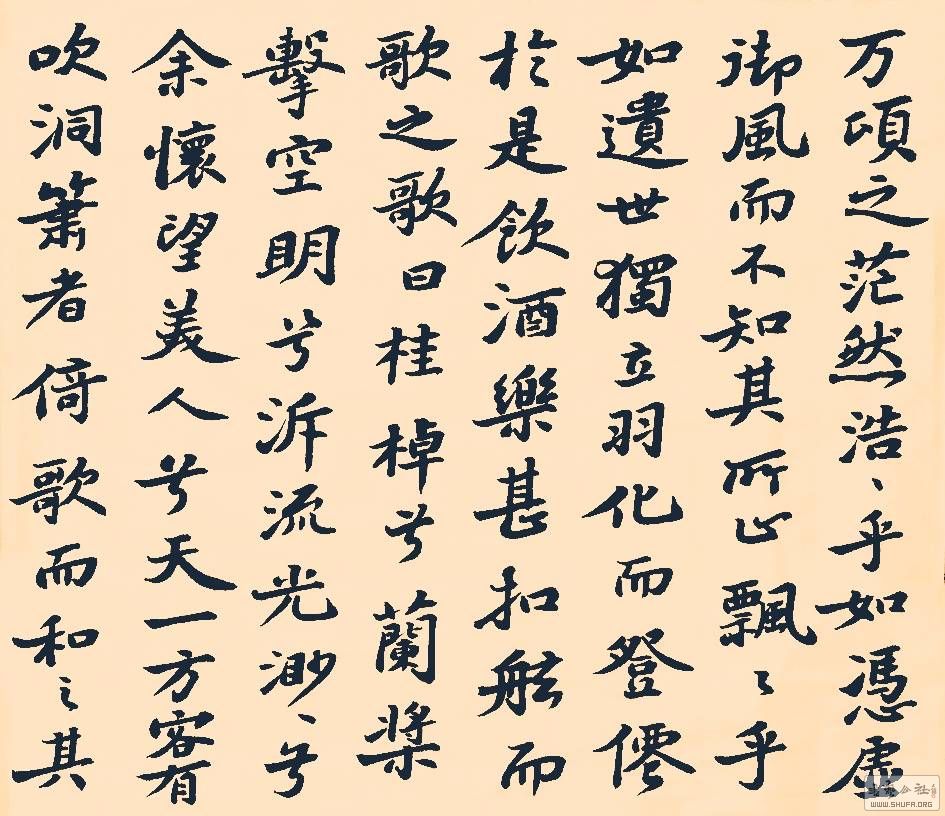 万頃之茫然浩〻乎如憑虛
御風而不知其所止飄〻乎
如遺世獨立羽化而登僊
於是飲酒樂甚扣舷而
歌之歌曰桂棹兮蘭槳
擊空明兮泝流光渺〻兮
余懷望美人兮天一方客有
吹洞簫者倚歌而和之其
公社
WWW.SHUFA.ORG